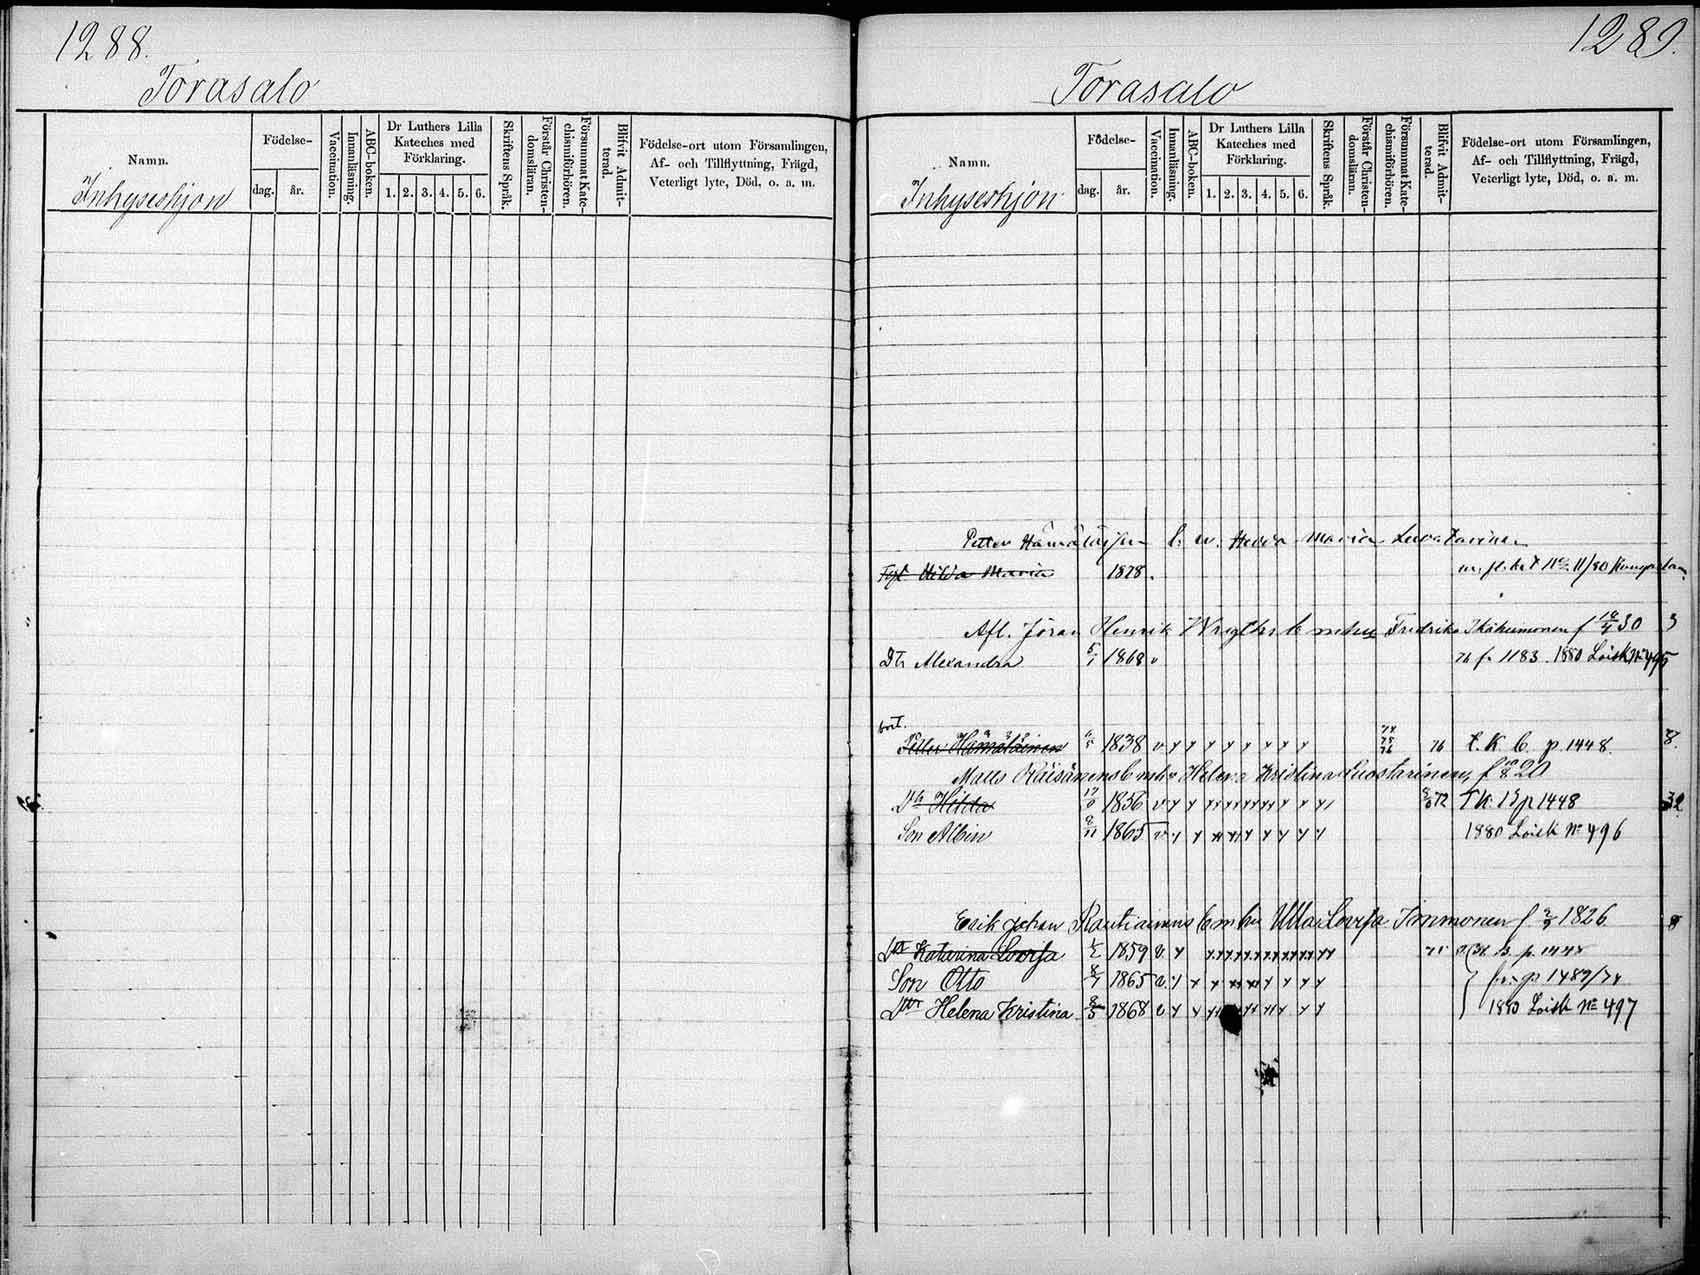 1288.
Torasalo
Namn.
Inhyseshjon
Födelse-
dag.
år.
Vaccination.
Innanläsning.
ABC-boken.
Dr Luthers Lilla
Kateches med
Förklaring.
1. 2. 3. 4. 5. 6.
Skriftens Språk.
Förstår Christen-
domsläran.
Försummat Kate-
chismiförhören.
Blifvit Admit-
terad.
Födelse-ort utom Församlingen,
Af- och Tillflyttning, Frägd,
Veterligt lyte, Död, o. a. m.
1289.
Torasalo
Namn.
Inhyseshjon
Födelse-
dag.
år.
Vaccination.
Innanläsning.
ABC-boken.
Dr Luthers Lilla
Kateches med
Förklaring.
1. 2. 3. 4. 5. 6.
Skriftens Språk.
Förstår Christen-
domsläran.
Försummat Kate-
chismiförhören.
Blifvit Admit-
terad.
Födelse-ort utom Församlingen,
Af- och Tillflyttning, Frägd,
Veterligt lyte, Död, o. a. m.
Petter Hämäläisen Hedda Maria
Hilda Maria 1878.
Afl. Jöran Henrik enka Fredrika f 30 3
Dtr Alexandra 5/1 1868 v 76 fr 1183. 1880 Loisk No 495
bort.
Petter Hämäläinen 1838 v 74 75 76 76 t. K. b. p. 1448. 8.
Matts Räisänens enka Helena Kristina Luostarinen f 20
Dtr Hilda 1856 v 72 T.K. B p 1448 32
Son Albin 9/11 1865 v 1880 Loisk No 496
Erik Johan Rautiainens enka Ulla Lovisa Immonen f 2/9 1826 8
Dtr Katarina Lovisa 1/2 1859 v. B. p. 1448
Son Otto 8/7 1865 v. 1489/74
Dtr Helena Kristina 8/5 1868 v 1880 Loisk No 497